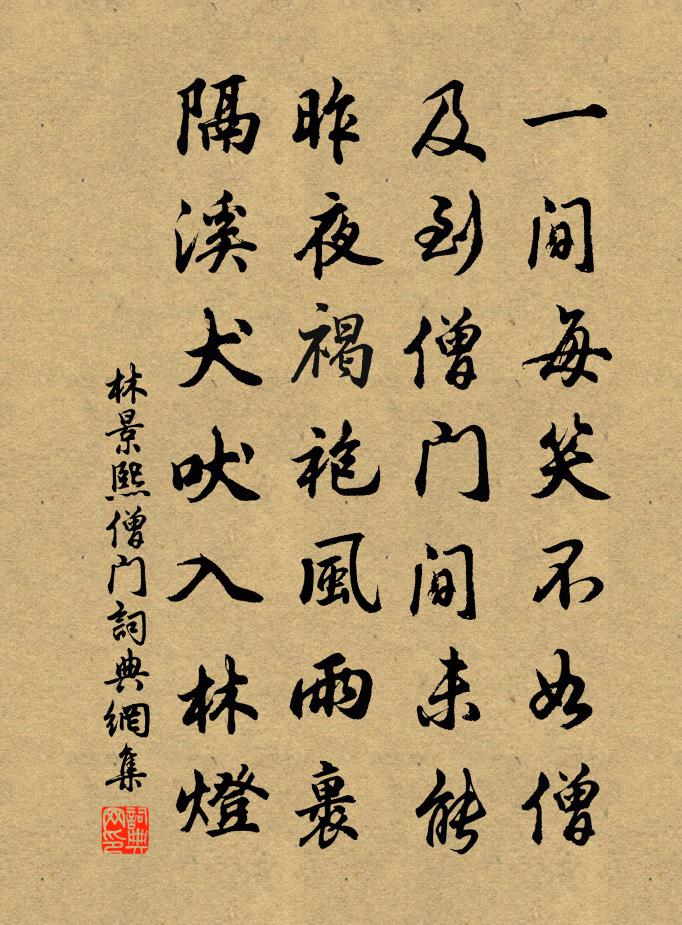 一间每笑不如僧
及到僧门间未能
昨夜褐袍風雨裹
隔溪犬吠入林燈
林景熙僧门詞典網集
詞典网印